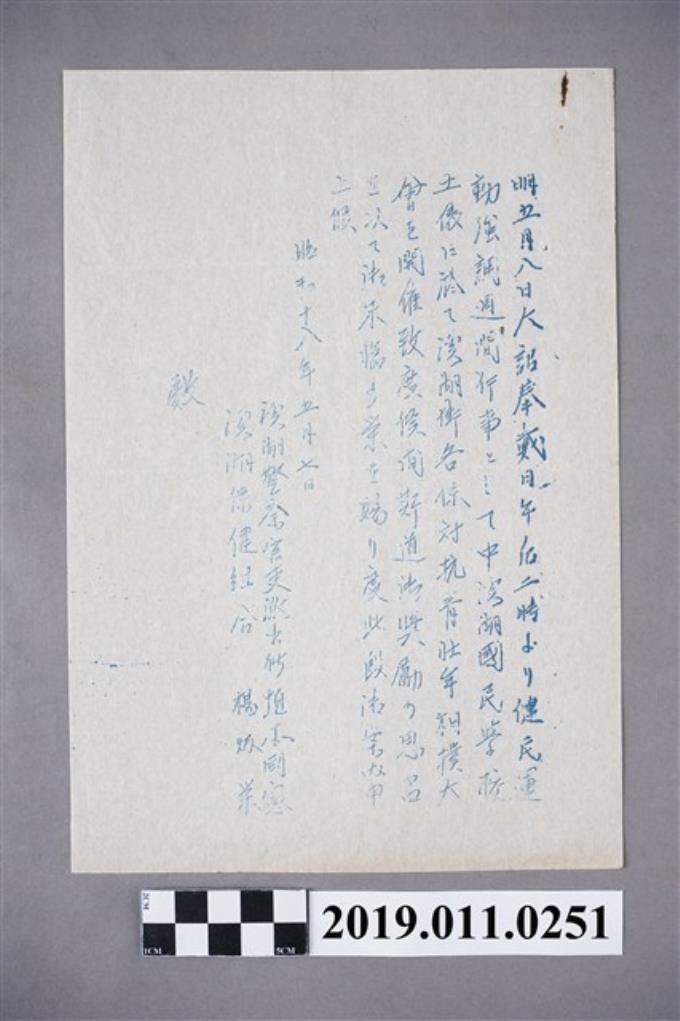 明五月八日大詔奉戴日午后二時より健民運
動強調週間行事として中溪湖國民學校
土俵に於て溪湖街各保対抗青壯年相撲大
會を開催致度候間斯道御奬勵の思召
を以て御來臨の榮を賜り度此段御案内申
上候
昭和十八年五月七日
溪湖警察官吏派出所
溪湖保健組合 楊 榮
殿
1CM
5CM
2019.011.0251